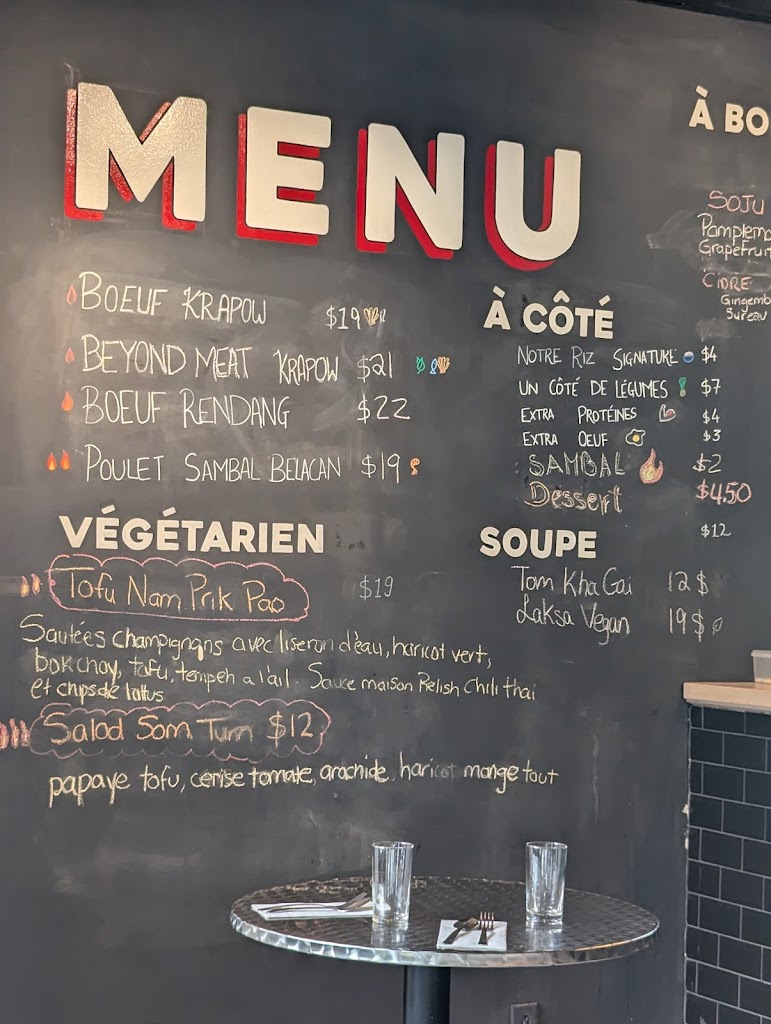 MENU
BOEUF KRAPOW $19
BEYOND MEAT KRAPOW $21
BOEUF RENDANG $22
POULET SAMBAL BELACAN $19
VÉGÉTARIEN
Tofu Nam Prik Pao $19
Sautées champignons avec liseron d'eau, haricot vert,
bokchoy, tofu, tempeh a l'ail. Sauce maison Relish Chili thai
et chips de lotus
Salad Som Tum $12
papaye tofu, cerise tomate, arachide, haricot mange tout
À CÔTÉ
NOTRE RIZ SIGNATURE $4
UN CÔTÉ DE LÉGUMES $7
EXTRA PROTÉINES $4
EXTRA OEUF $3
SAMBAL $2
Dessert $4.50
$12
SOUPE
Tom Kha Gai 12$
Laksa Vegan 19$
À BO
SOJU
Pamplemo
Grapefruit
CIDRE
Gingemb
Sureau